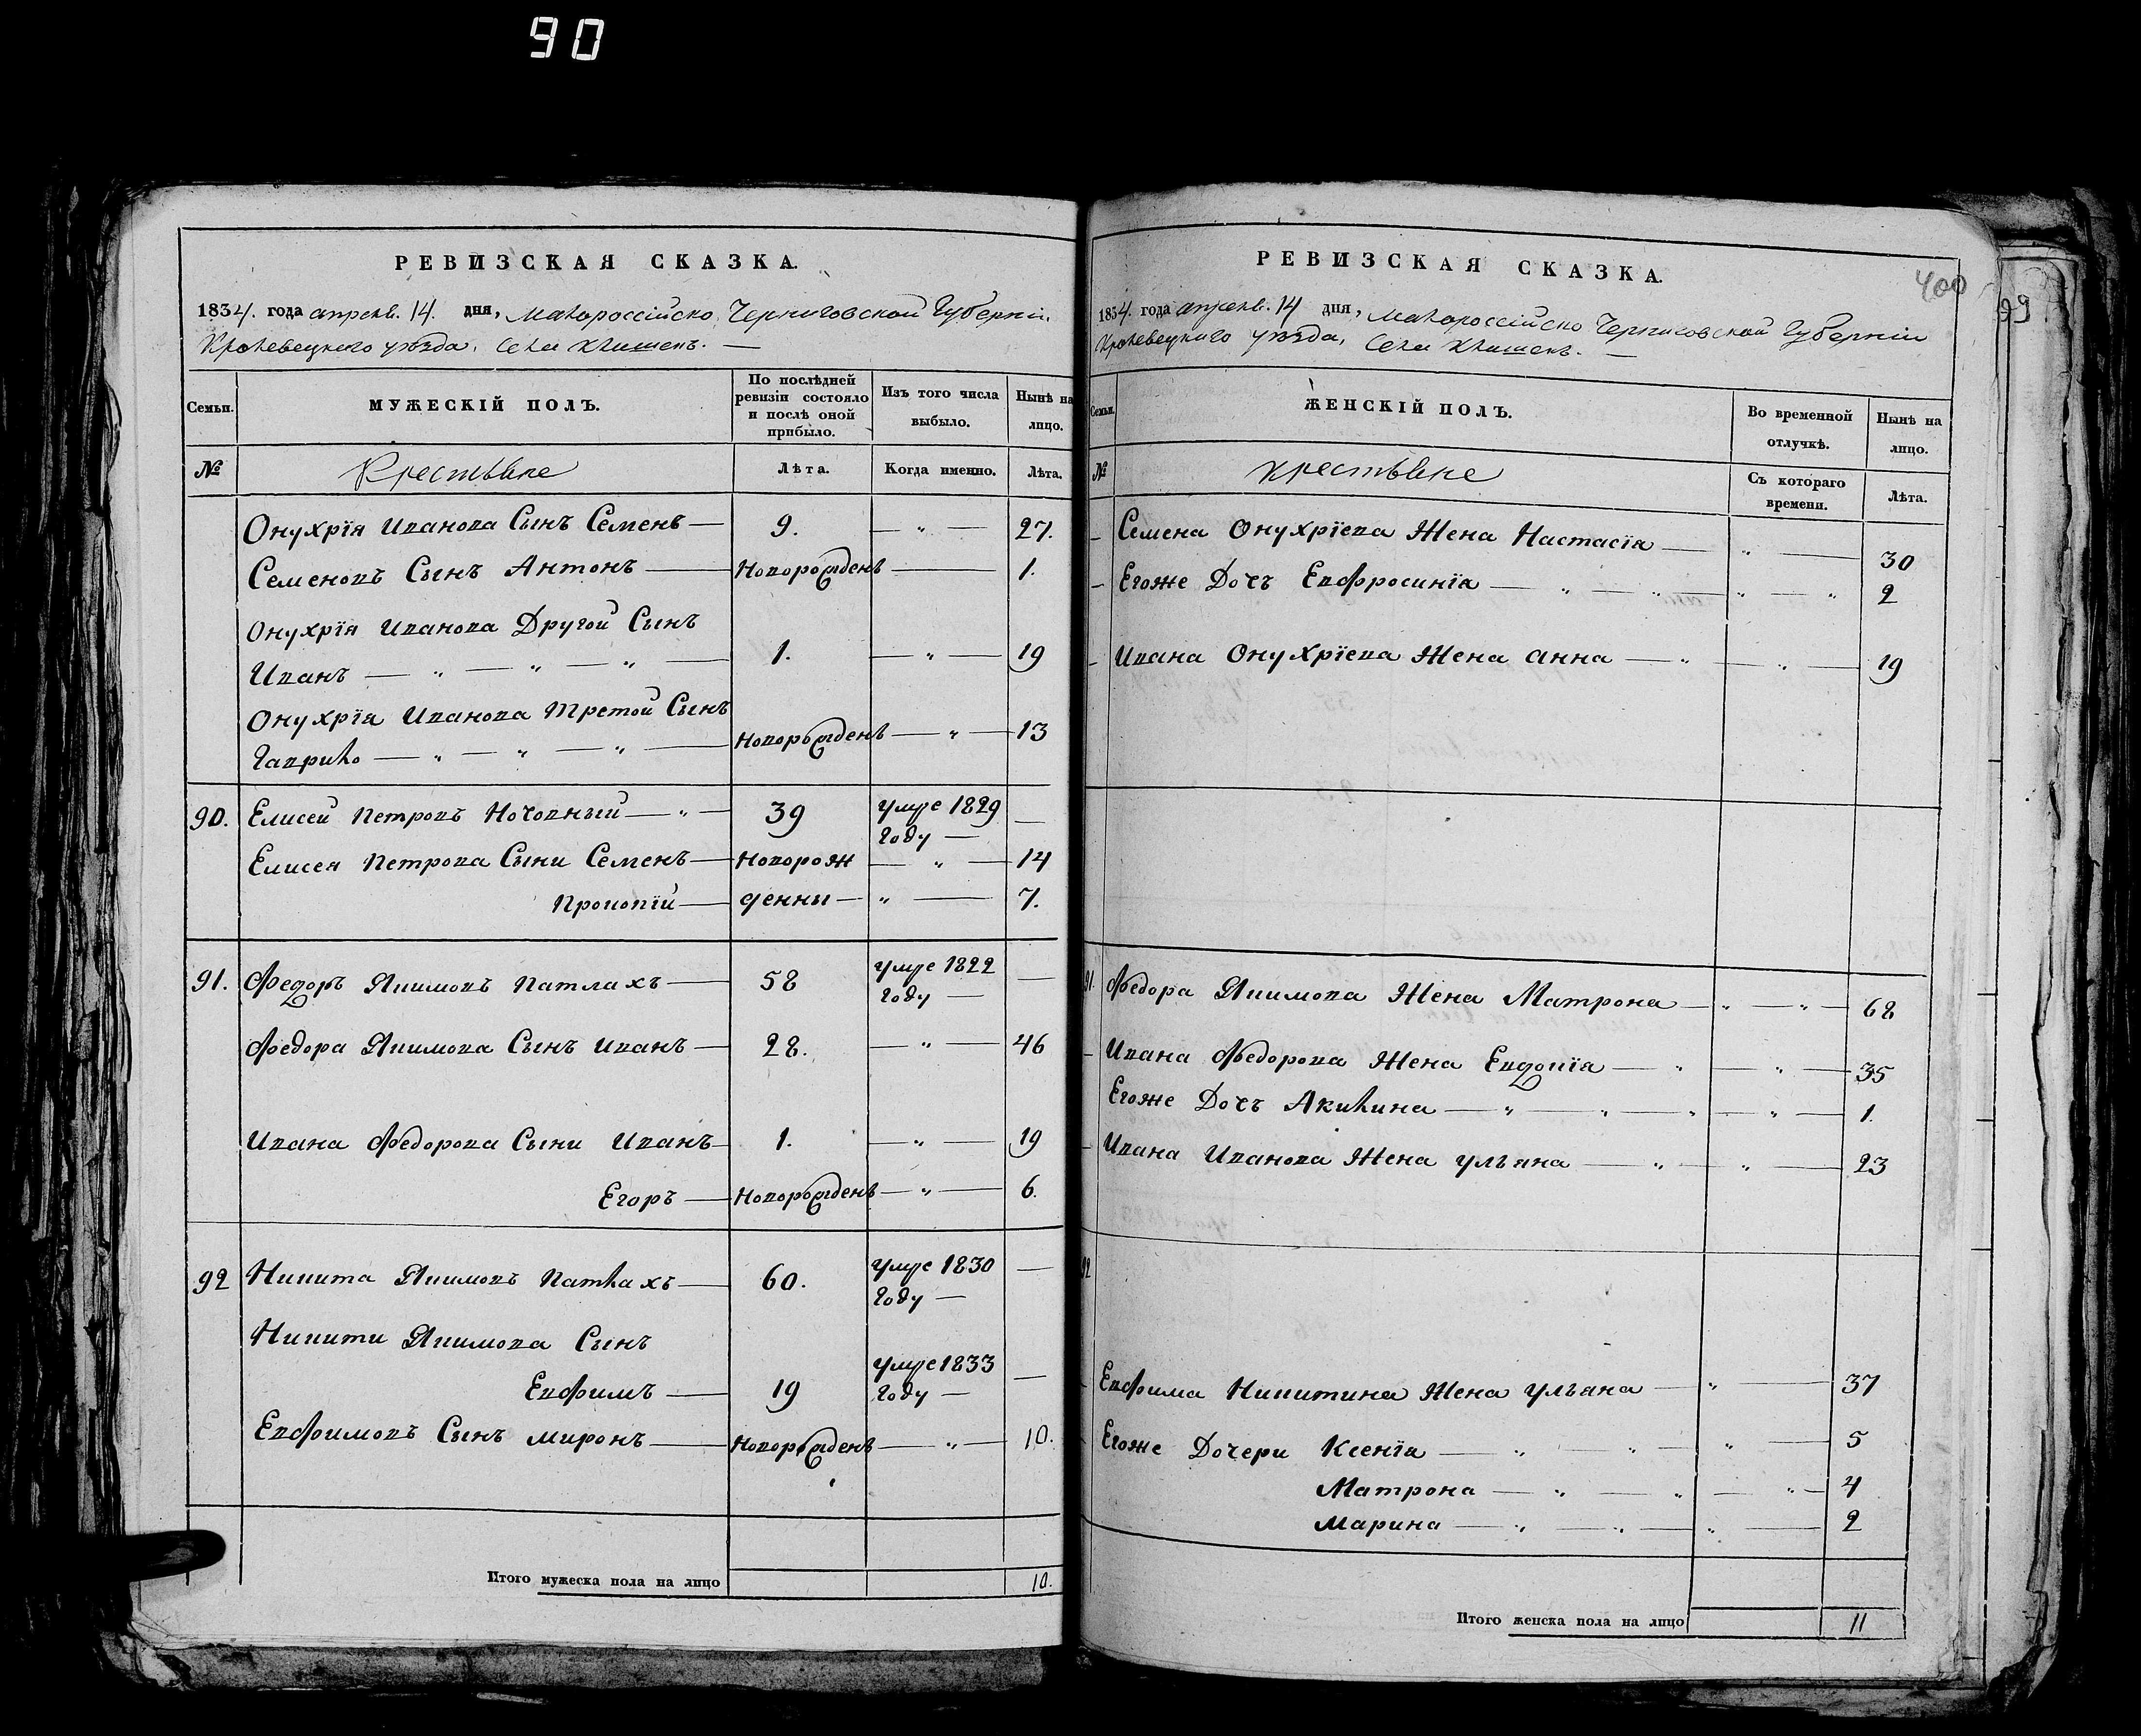 90
РЕВИЗСКАЯ СКАЗКА.
1834. года апреля. 14. дня, Малороссійско Черниговской Губерніи.
Кролевецкого уѣзда, Села Клишекъ. —
Семьи.
МУЖЕСКІЙ ПОЛЪ.
По послѣдней ревизіи состояло и послѣ оной прибыло.
Изъ того числа выбыло.
Нынѣ на лицо.
№ Крестьяне Лѣта. Когда именно. Лѣта.
Онухрїя Иванова Сынъ Семенъ — 9. — „ — 27.
Семеновъ Сынъ Антонъ — Новорожденъ — 1.
Онухрїя Иванова Другой Сынъ
Иванъ — „ — „ — „ — 1. — „ — 19
Онухрїя Иванова Третой Сынъ
Гаврило — „ — „ — „ — Новорожденъ — „ — 13
90. Елисей Петровъ Ночовный — „ — 39 умре 1829 Году — —
Елисея Петрова Сыни Семенъ — Новорож — „ — 14
Прокопїй — денни — „ — 7.
91. Федоръ Якимовъ Патлахъ — 58 умре 1822 Году — —
Федора Якимова Сынъ Иванъ — 28. — „ — 46
Ивана Федорова Сыни Иванъ — 1. — „ — 19
Егоръ — Новорожденъ — „ — 6.
92 Никита Якимовъ Патлахъ — 60. умре 1830 Году — —
Никити Якимова Сынъ
Евфимъ — 19 умре 1833 Году — —
Евфимовъ Сынъ Миронъ — Новорожденъ — „ — 10.
Итого мужеска пола на лицо 10.
РЕВИЗСКАЯ СКАЗКА.
400
99
1834. года апреля. 14 дня, Малороссійско Черниговской Губерніи
Кролевецкиго уѣзда, Села Клишекъ. —
Семьи.
ЖЕНСКІЙ ПОЛЪ.
Во временной отлучкѣ.
Нынѣ на лицо.
№ крестьяне Съ котораго времени. Лѣта.
— Семена Онухрїева Жена Настасїя — „ — 30
— Егоже Дочъ Евфросинїя — „ — „ — „ — „ 2
— Ивана Онухрїева Жена Анна — „ — „ — 19
91. Федора Якимова Жена Матрона — „ — „ — 68
— Ивана Федорова Жена Евдокїя — „ — „ — 35
Егоже Дочъ Акилина — „ — „ — „ — „ — 1.
— Ивана Иванова Жена Ульяна — „ — „ — 23
92
— Евфима Никитина Жена Ульяна — „ — 37
Егоже Дочери Ксенїя — „ — „ — „ — 5
Матрона — „ — „ — „ — 4
Марина — „ — „ — „ — 2
Итого женска пола на лицо 11